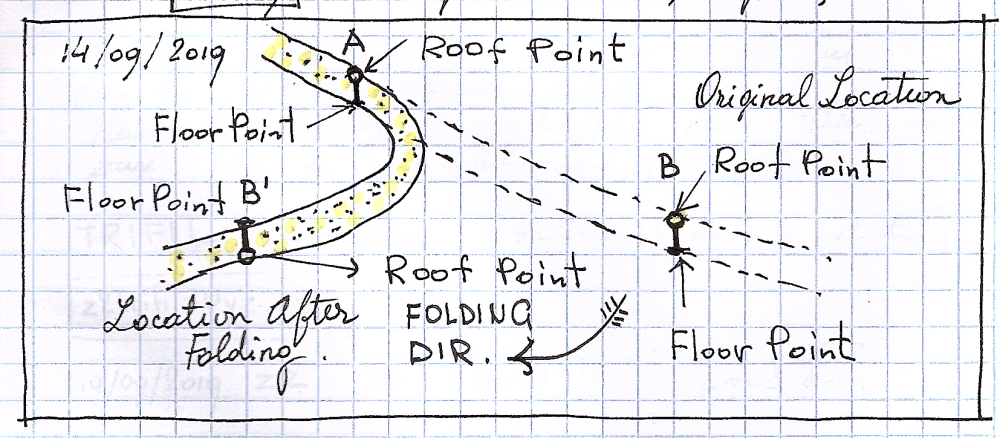 14/09/2019
A
Roof Point
Original Location
Floor Point
B
Roof Point
Floor Point B'
Roof Point
Location After
Folding.
FOLDING
DIR.
Floor Point